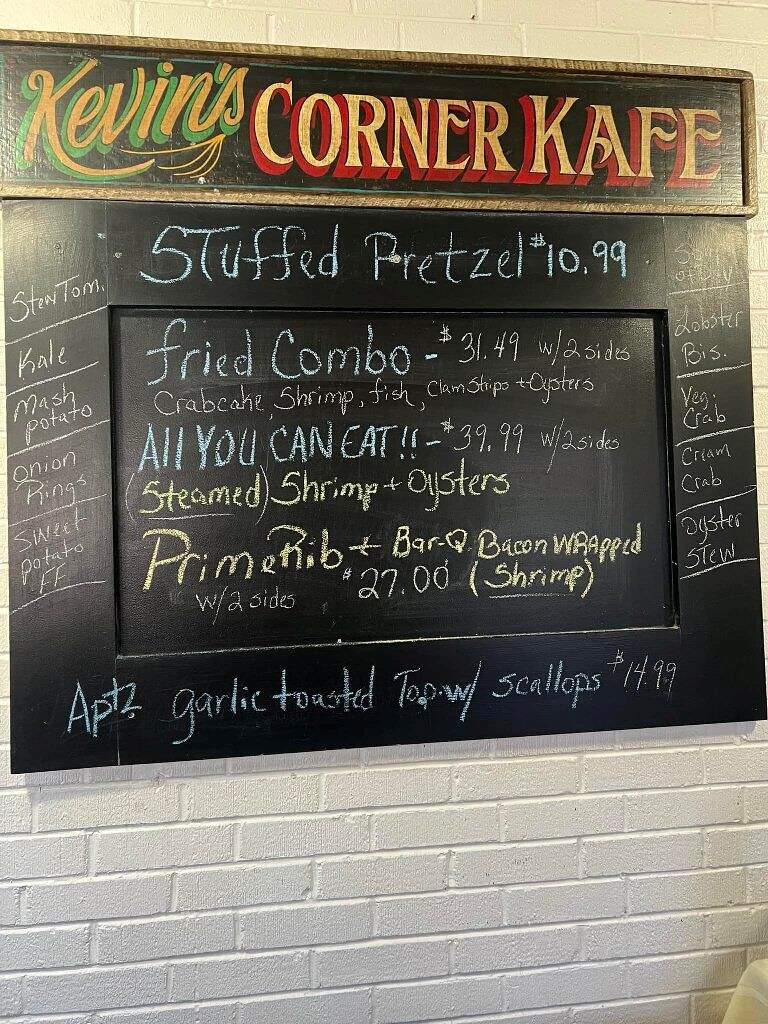 Kevin's CORNER KAFE
STuffed Pretzel $10.99
Stew Tom.
Kale
Mash
potato
Onion
Rings
Sweet
potato
FF
fried Combo - $31.49 w/2 sides
Crabcake, Shrimp, fish, Clam Strips + Oysters
All YOU CAN EAT!! - $39.99 w/2 sides
(Steamed) Shrimp + Oysters
Prime Rib + Bar-Q Bacon WRApped
w/2 sides $27.00 (Shrimp)
Lobster
Bis.
Veg.
Crab
Cream
Crab
Oyster
STew
garlic toasted Top w/ scallops $14.99